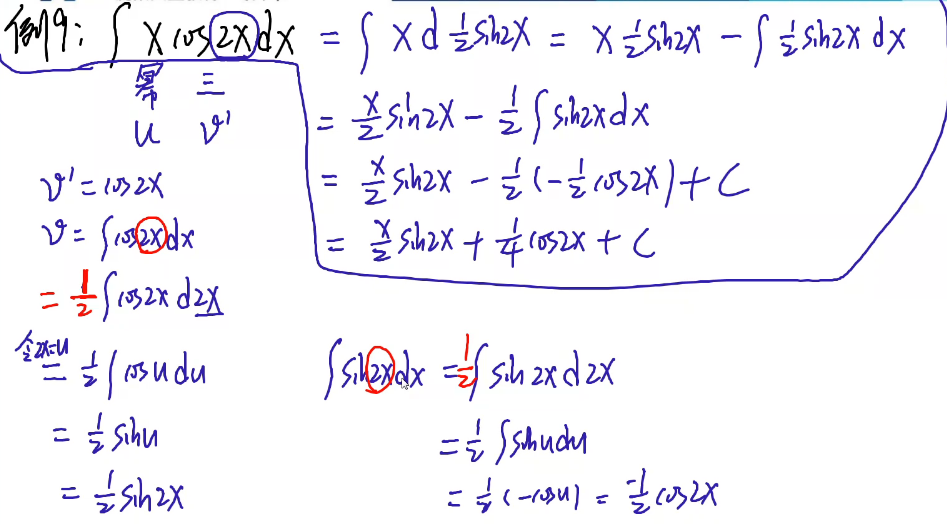 例9: ∫ x cos2x dx = ∫ x d ½ sin2x = x ½ sin2x − ∫ ½ sin2x dx
幂 三
u v'
= x/2 sin2x − ½ ∫ sin2x dx
= x/2 sin2x − ½ (−½ cos2x) + C
= x/2 sin2x + ¼ cos2x + C
v' = cos2x
v = ∫ cos2x dx
= ½ ∫ cos2x d2x
令2x=u
= ½ ∫ cosu du
= ½ sinu
= ½ sin2x
∫ sin2x dx = ½ ∫ sin2x d2x
= ½ ∫ sinu du
= ½ (−cosu) = −½ cos2x